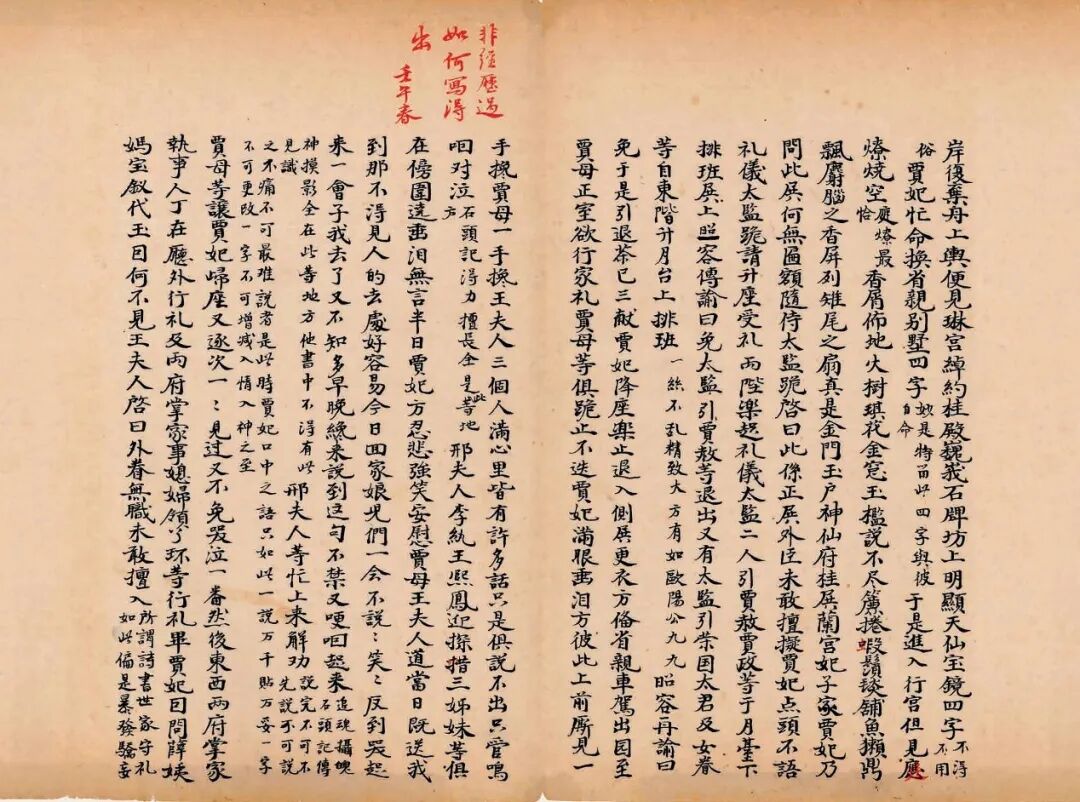 岸復棄舟上輿便見琳宮綽約桂殿巍峩石牌坊上明顯天仙宝鏡四字不得不用
俗賈妃忙命換省親別墅四字妙是特留此四字與彼自命于是進入行宮但見庭
燎燒空庭燎最恰香屑佈地火樹琪花金窓玉檻說不尽簾捲蝦鬚毯鋪魚獺鼎
飄麝腦之香屏列雉尾之扇真是金門玉户神仙府桂殿蘭宮妃子家賈妃乃
問此殿何無匾額隨侍太監跪啓曰此係正殿外臣未敢擅擬賈妃点頭不語
礼儀太監跪請升座受礼兩陛樂起礼儀太監二人引賈赦賈政等于月臺下
排班殿上照容傳諭曰免太監引賈赦等退出又有太監引荣国太君及女眷
等自東階升月台上排班一絲不乱精致大方有如歐陽公九九昭容再諭曰
免于是引退茶已三献賈妃降座樂止退入側殿更衣方俻省親車駕出园至
賈母正室欲行家礼賈母等俱跪止不迭賈妃滿眼垂泪方彼此上前厮見一
非經歷過
如何寫得
出 壬午春
手攙賈母一手攙王夫人三個人滿心里皆有許多話只是俱說不出只管嗚
咽对泣石頭記得力擅長全是此等地方邢夫人李紈王熙鳳迎探惜三姊妹等俱
在傍圍遶垂泪無言半日賈妃方忍悲強笑安慰賈母王夫人道當日既送我
到那不得見人的去處好容易今日回家娘兒們一会不說:笑:反到哭起
来一會子我去了又不知多早晚纔来說到这句不禁又哽咽起来追魂攝魄石頭記傳
神摸影全在此等地方他書中不得有此見識邢夫人等忙上来解劝說完不可不先說不可說
之不痛不可最难說者是此時賈妃口中之語只如此一說万千貼万妥一字不可更改一字不可增减入情入神之至
賈母等讓賈妃歸座又逐次一:見过又不免哭泣一畨然後東西兩府掌家
執事人丁在廳外行礼及兩府掌家事媳婦領丫环等行礼畢賈妃因問薛姨
媽宝釵代玉因何不見王夫人啓曰外眷無職未敢擅入所謂詩書世家守礼如此偏是暴發驕妄